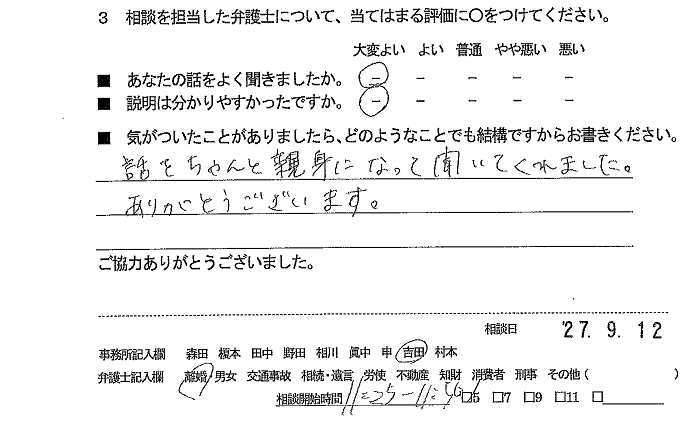 3 相談を担当した弁護士について、当てはまる評価に〇をつけてください。
大変よい よい 普通 やや悪い 悪い
■ あなたの話をよく聞きましたか。 － － － － －
■ 説明は分かりやすかったですか。 － － － － －
■ 気がついたことがありましたら、どのようなことでも結構ですからお書きください。
話をちゃんと親身になって聞いてくれました。
ありがとうございます。
ご協力ありがとうございました。
相談日 '27. 9. 12
事務所記入欄 森田 榎本 田中 野田 相川 眞中 申 吉田 村本
弁護士記入欄 離婚 男女 交通事故 相続・遺言 労使 不動産 知財 消費者 刑事 その他(
相談開始時間 11:25-11:56 □5 □7 □9 □11 □